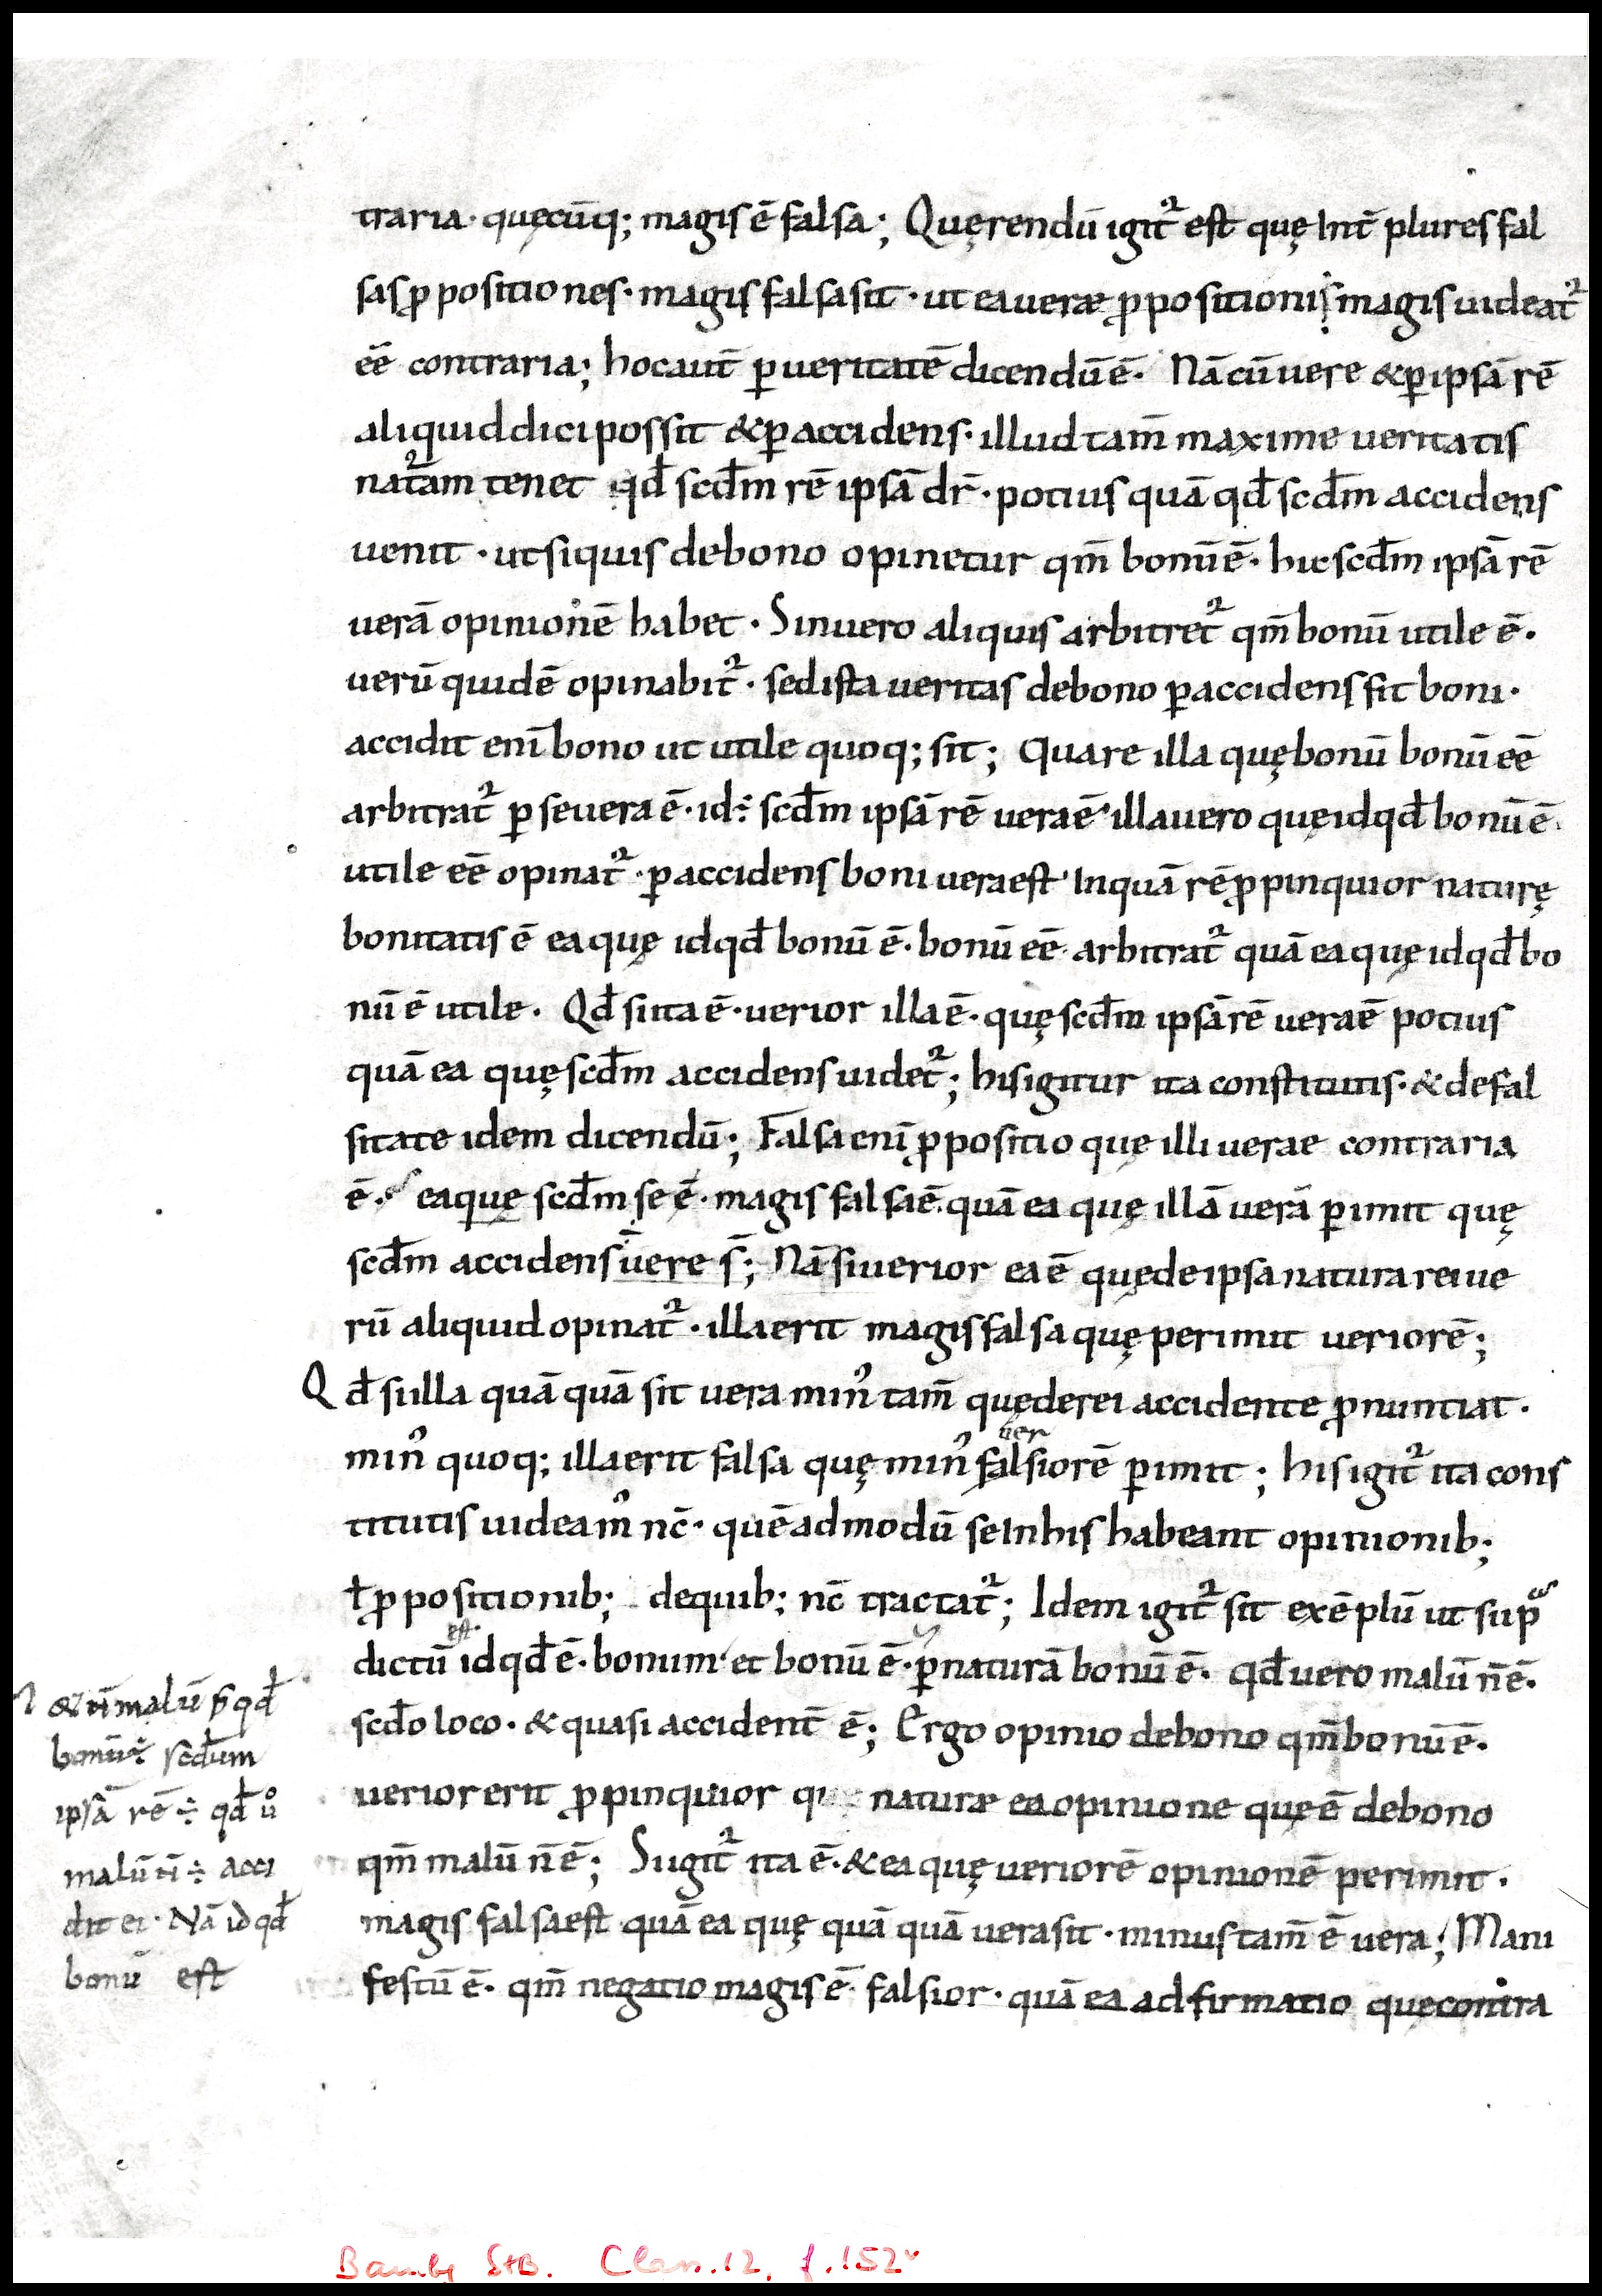 traria· quęcūq; magis ē falsa; Quęrendū igit᷑ est quę int̄ plures fal
sas ꝓpositiones· magis falsa sit· ut ea veræ ꝓpositionis magis uideat᷑
eē contraria; hoc aut̄ ꝑ veritatē dicendū ē· Nā cū vere & ꝑ ipsā rē
aliquid dici possit & ꝑ accidens· illud tam̄ maxime veritatis
nat᷑am tenet qđ scđm rē ipsā dr̄· potius quā qđ scđm accidens
uenit· ut si quis de bono opinetur qm̄ bonū ē· hic scđm ipsā rē
uerā opinionē habet· Sin uero aliquis arbitret᷑ qm̄ bonū utile ē·
uerū quidē opinabit᷑· sed ista ueritas de bono ꝑ accidens fit boni·
accidit eni bono ut utile quoq; sit; Quare illa quę bonū bonū eē
arbitrat᷑ ꝑ se uera ē· id÷ scđm ipsā rē uera ē· illa uero quę id qđ bonū ē·
utile eē opinat᷑· ꝑ accidens boni uera est· In quā rē ꝓpinquior naturę
bonitatis ē ea quę id qđ bonū ē· bonū eē arbitrat᷑ quā ea quę id qđ bo
nū ē utile· Qđ si ita ē· uerior illa ē· quę scđm ipsā rē uera ē potius
quā ea quę scđm accidens uidet᷑; his igitur ita constitutis· & de fal
sitate idem dicendū; Falsa eni ꝓpositio quę illi uerae contraria
ē· ea quę scđm se ē· magis falsa ē· quā ea quę illā uerā ꝑimit quę
scđm accidens uere s̄; Nā si uerior ea ē quę de ipsa natura rei ue
rū aliquid opinat᷑· illa erit magis falsa quę perimit ueriorē;
Qđ si illa quā quā sit uera min᾽ tam̄ quę de rei accidente ꝓnuntiat·
min᾽ quoq; illa erit falsa quę min᾽ falsiorē ꝑimit; his igit᷑ ita cons
uer
titutis uideam᾽ nc̄· quē ad modū se in his habeant opinionib;
ł ꝓpositionib; de quib; nc̄ tractat᷑; Idem igit᷑ sit exēplū ut sup̄
dictū est· id qđ ē· bonum· et bonū ē· ꝑ naturā bonū ē· qđ uero malū n̄ ē·
scđo loco· & quasi accident̄ ē; Ergo opinio de bono qm̄ bonū ē·
uerior erit ꝓpinquior naturæ ea opinione quę ē de bono
qm̄ malū n̄ ē; Si igit᷑ ita ē· & ea quę ueriorē opinionē perimit·
magis falsa est quā ea quę quā quā uera sit· minus tam̄ ē uera; Mani
festū ē· qm̄ negatio magis ē falsior· quā ea adfirmatio quę contra
& n̄ malū p̄ qđ
bonū ÷ scđum
ipsā rē ÷ qđ ů
malū n̄ ÷ acci
dit ei· Nā id qđ
bonū est
Bambg StB. Class. 12, f. 152v